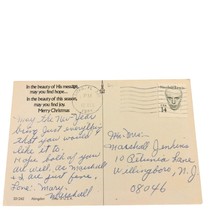 In the beauty of His message,
may you find hope...
In the beauty of this season,
may you find joy.
Merry Christmas
May the New Year
bring just everything
that you would
like it to.
Hope both of you
are well. As Marshall
are just fine,
Love, Mary,
Marshall
Mrs
Marshall Jenkins
10 Lane
Willingboro, N.J
08046